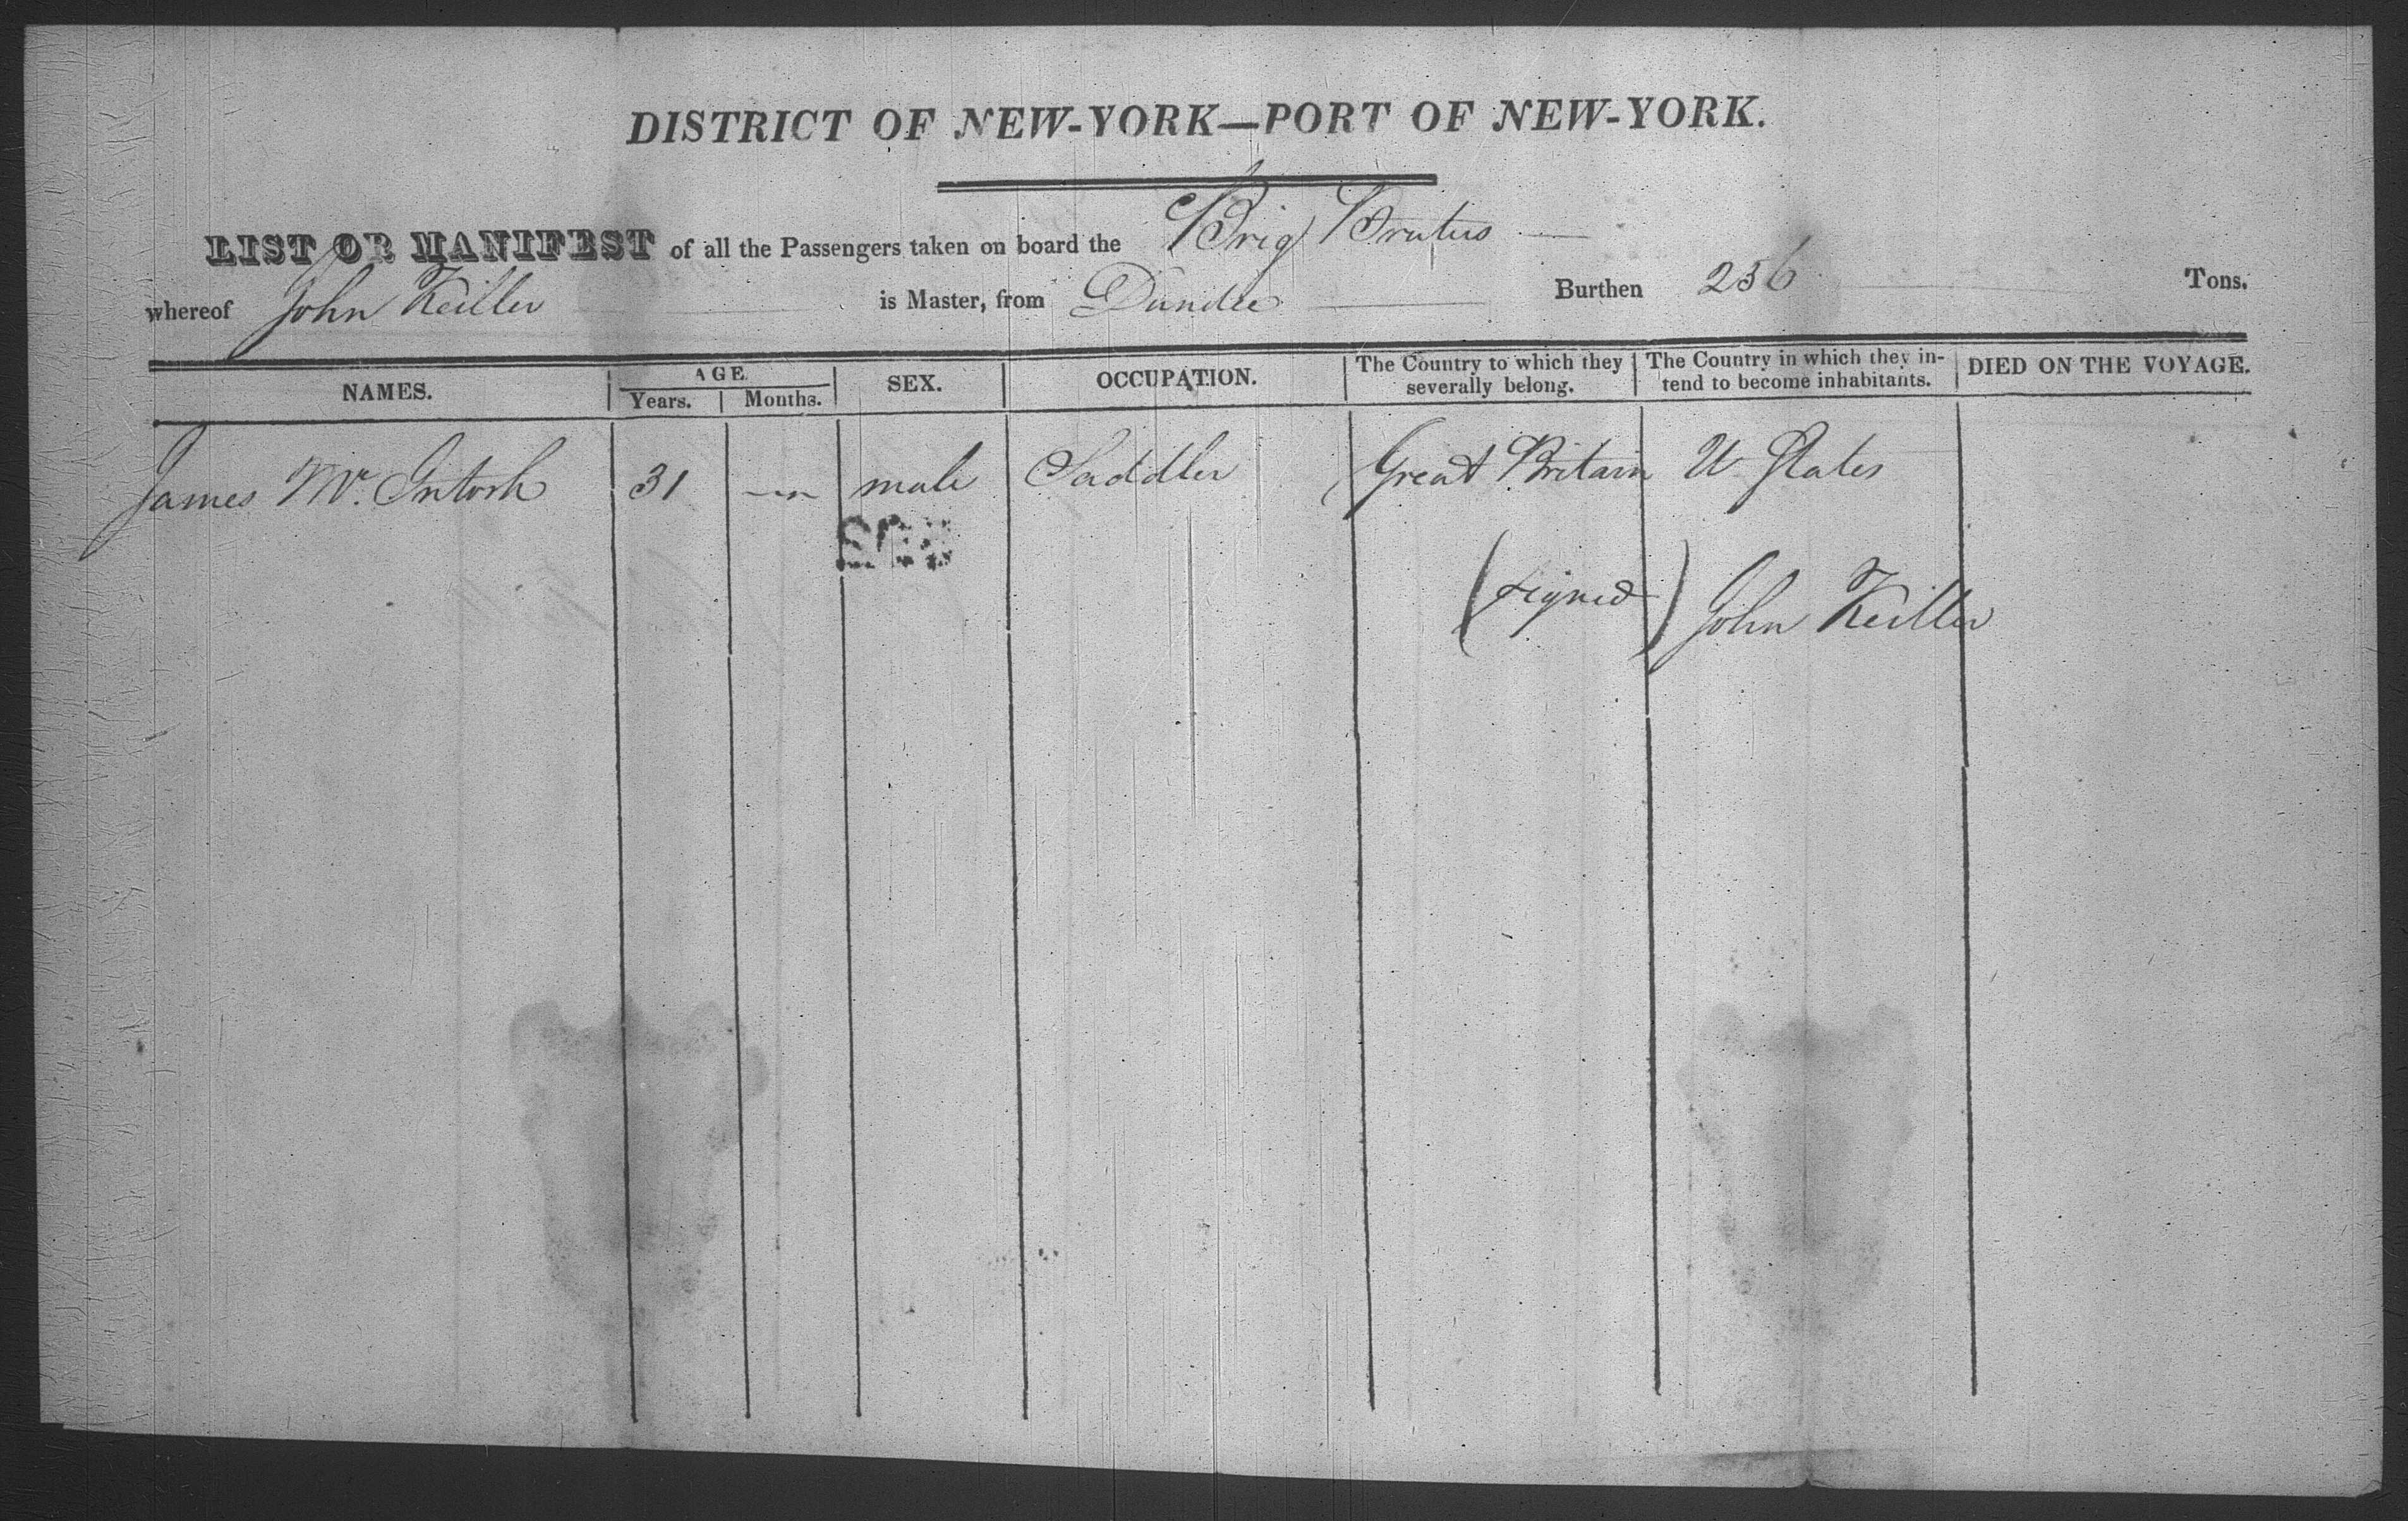 DISTRICT OF NEW-YORK—PORT OF NEW-YORK.
LIST OR MANIFEST of all the Passengers taken on board the Brig Brutus
whereof John Keiller is Master, from Dundee Burthen 256 Tons.
NAMES. AGE Years. Months. SEX. OCCUPATION. The Country to which they severally belong. The Country in which they in-tend to become inhabitants. DIED ON THE VOYAGE.
James Mc. Intosh 31 male Saddler Great Britain U States
(signed) John Keiller